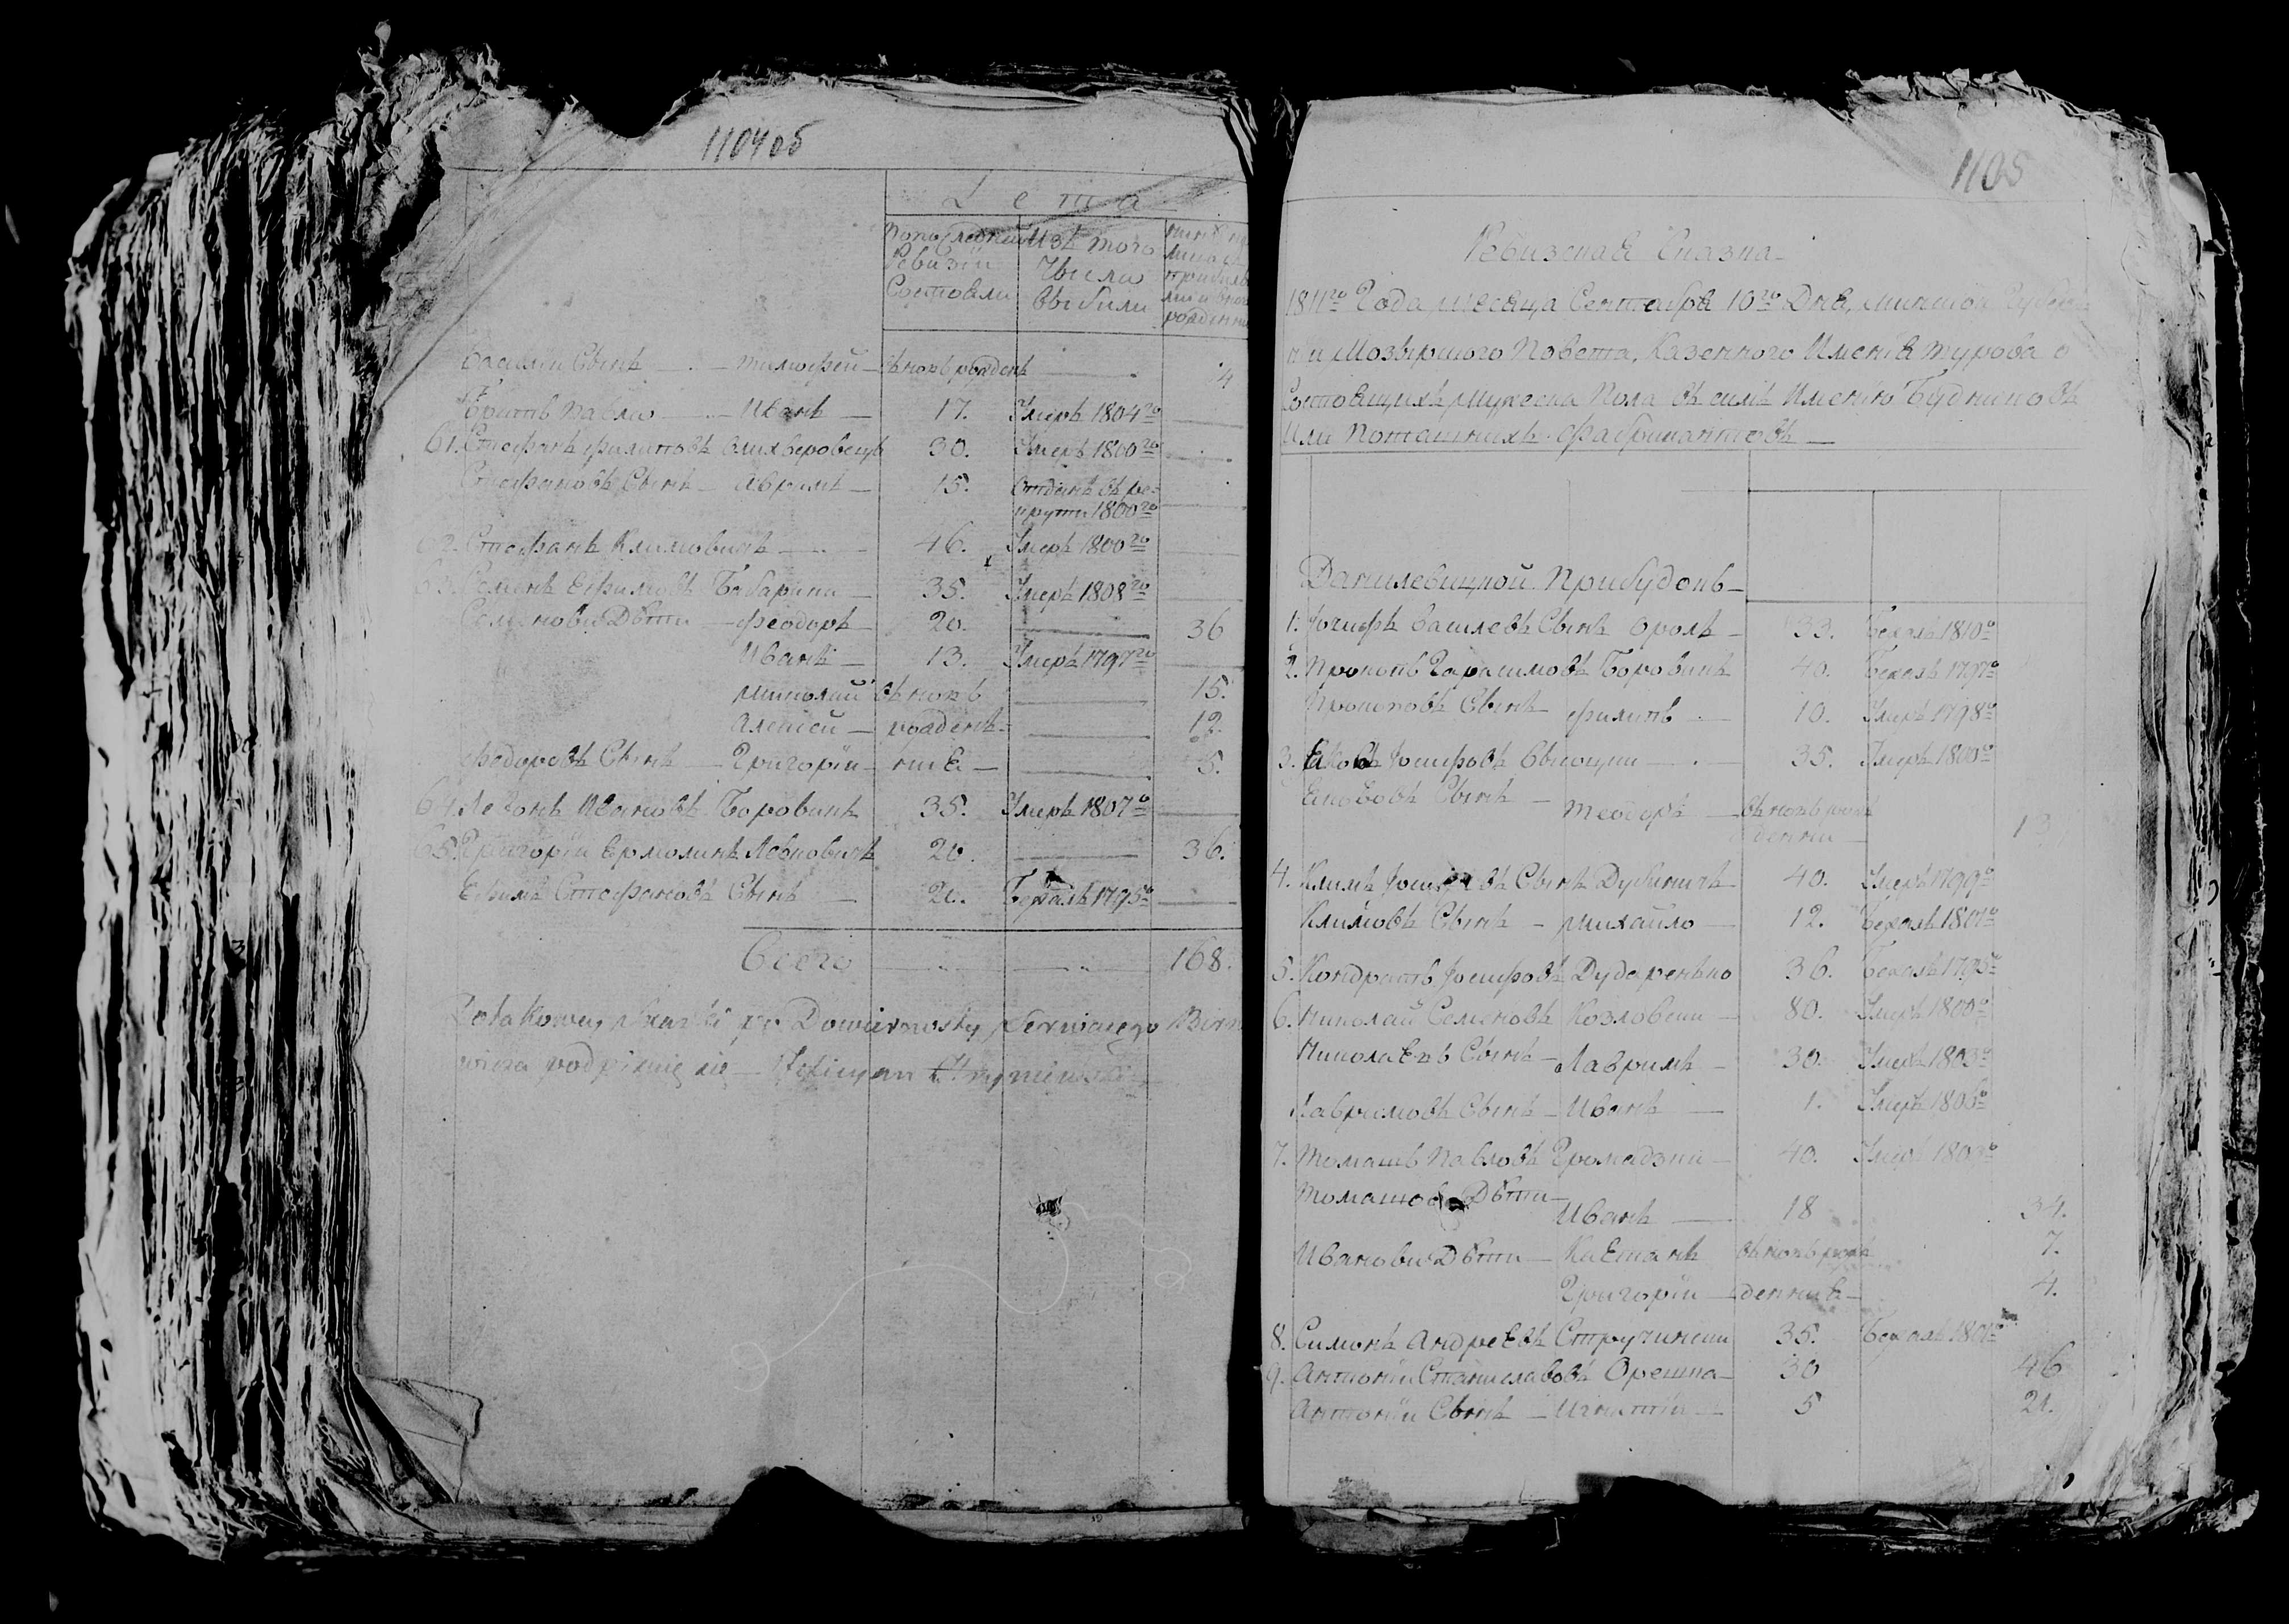 1104об
Лета
Попоследней
Ревизіи
Состояли
Изъ того
Числа
Выбыли
Василіи Сынъ — Тимофей — въновь рожденъ — 14
Братъ Павла — Иванъ — 17. Умеръ 1804го
61. Стефанъ Филиповъ 30. Умеръ 1800го
Стефановъ Сынъ — Аврамъ — 15. Отданъ въ ре-
круты 1800го
62. Стефанъ Климовичъ — 46. Умеръ 1800го
63. Семенъ Ефимовъ Бабарыка — 35. Умеръ 1808го
Семеновы Дѣти — Феодоръ — 20. — 36
Иванъ — 13. Умеръ 1797го
Николай въновь — 15.
Алексей — рожден- — 12.
Федоровъ Сынъ — Григорій — ныЕ — 5.
64. Леонъ Ивановъ Боровикъ 35. Умеръ 1807го
65. Григорій Ермолинъ Леоновичъ 20. — 36.
Ефимъ Стефановъ Сынъ — 20. Бежалъ 1795го
Всего — 168.
Zatakowąż Skazkę po Dowiernosty
podpisuię się
1105
Ревизская Сказка
1811го Года, месяца Сентября 10го Дня, Минской Губер
ніи Мозырского Повета, Казенного Имѣнія Турова о
Состоящихъ Мужеска Пола въ семъ Имѣнію Будниковъ
Или Поташныхъ Фабрикантовъ —
Данилевицкой Прибудокъ —
1. Іосифъ Василевъ Сынъ Оролъ — 33. Бежалъ 1810го
2. Прокопъ Гарасимовъ Боровикъ 40. Бежалъ 1797го
Прокоповъ Сынъ — Филипъ — 10. Умеръ 1798го
3. Яковъ Іосифовъ Высоцки — 35. Умеръ 1800го
Яковъ Сынъ — Теодоръ — въновь рож
денни — 13
4. Климъ Іосифовъ Сынъ Дубиничъ 40. Умеръ 1799го
Климовъ Сынъ — Михайло — 12. Бежалъ 1801го
5. Кондратъ Іосифовъ Дударенько 36. Бежалъ 1795го
6. Николай Семеновъ Козловски — 80. Умеръ 1800го
Николаевъ Сынъ — Лавримъ — 30. Умеръ 1803го
Лавримовъ Сынъ — Иванъ — 1. Умеръ 1805го
7. Томашъ Павловъ Громадзки — 40. Умеръ
Томашовы Дѣти — Иванъ — 18 34.
Ивановы Дѣти — КаЕтанъ въновь рож 7.
Григорій — денныЕ — 4.
8. Симонъ Андреевъ Стручински 35. Бежалъ 1801го
9. Антоній Станиславовъ Орешка — 30 46
Антоніи Сынъ — Игнатій — 5 21.